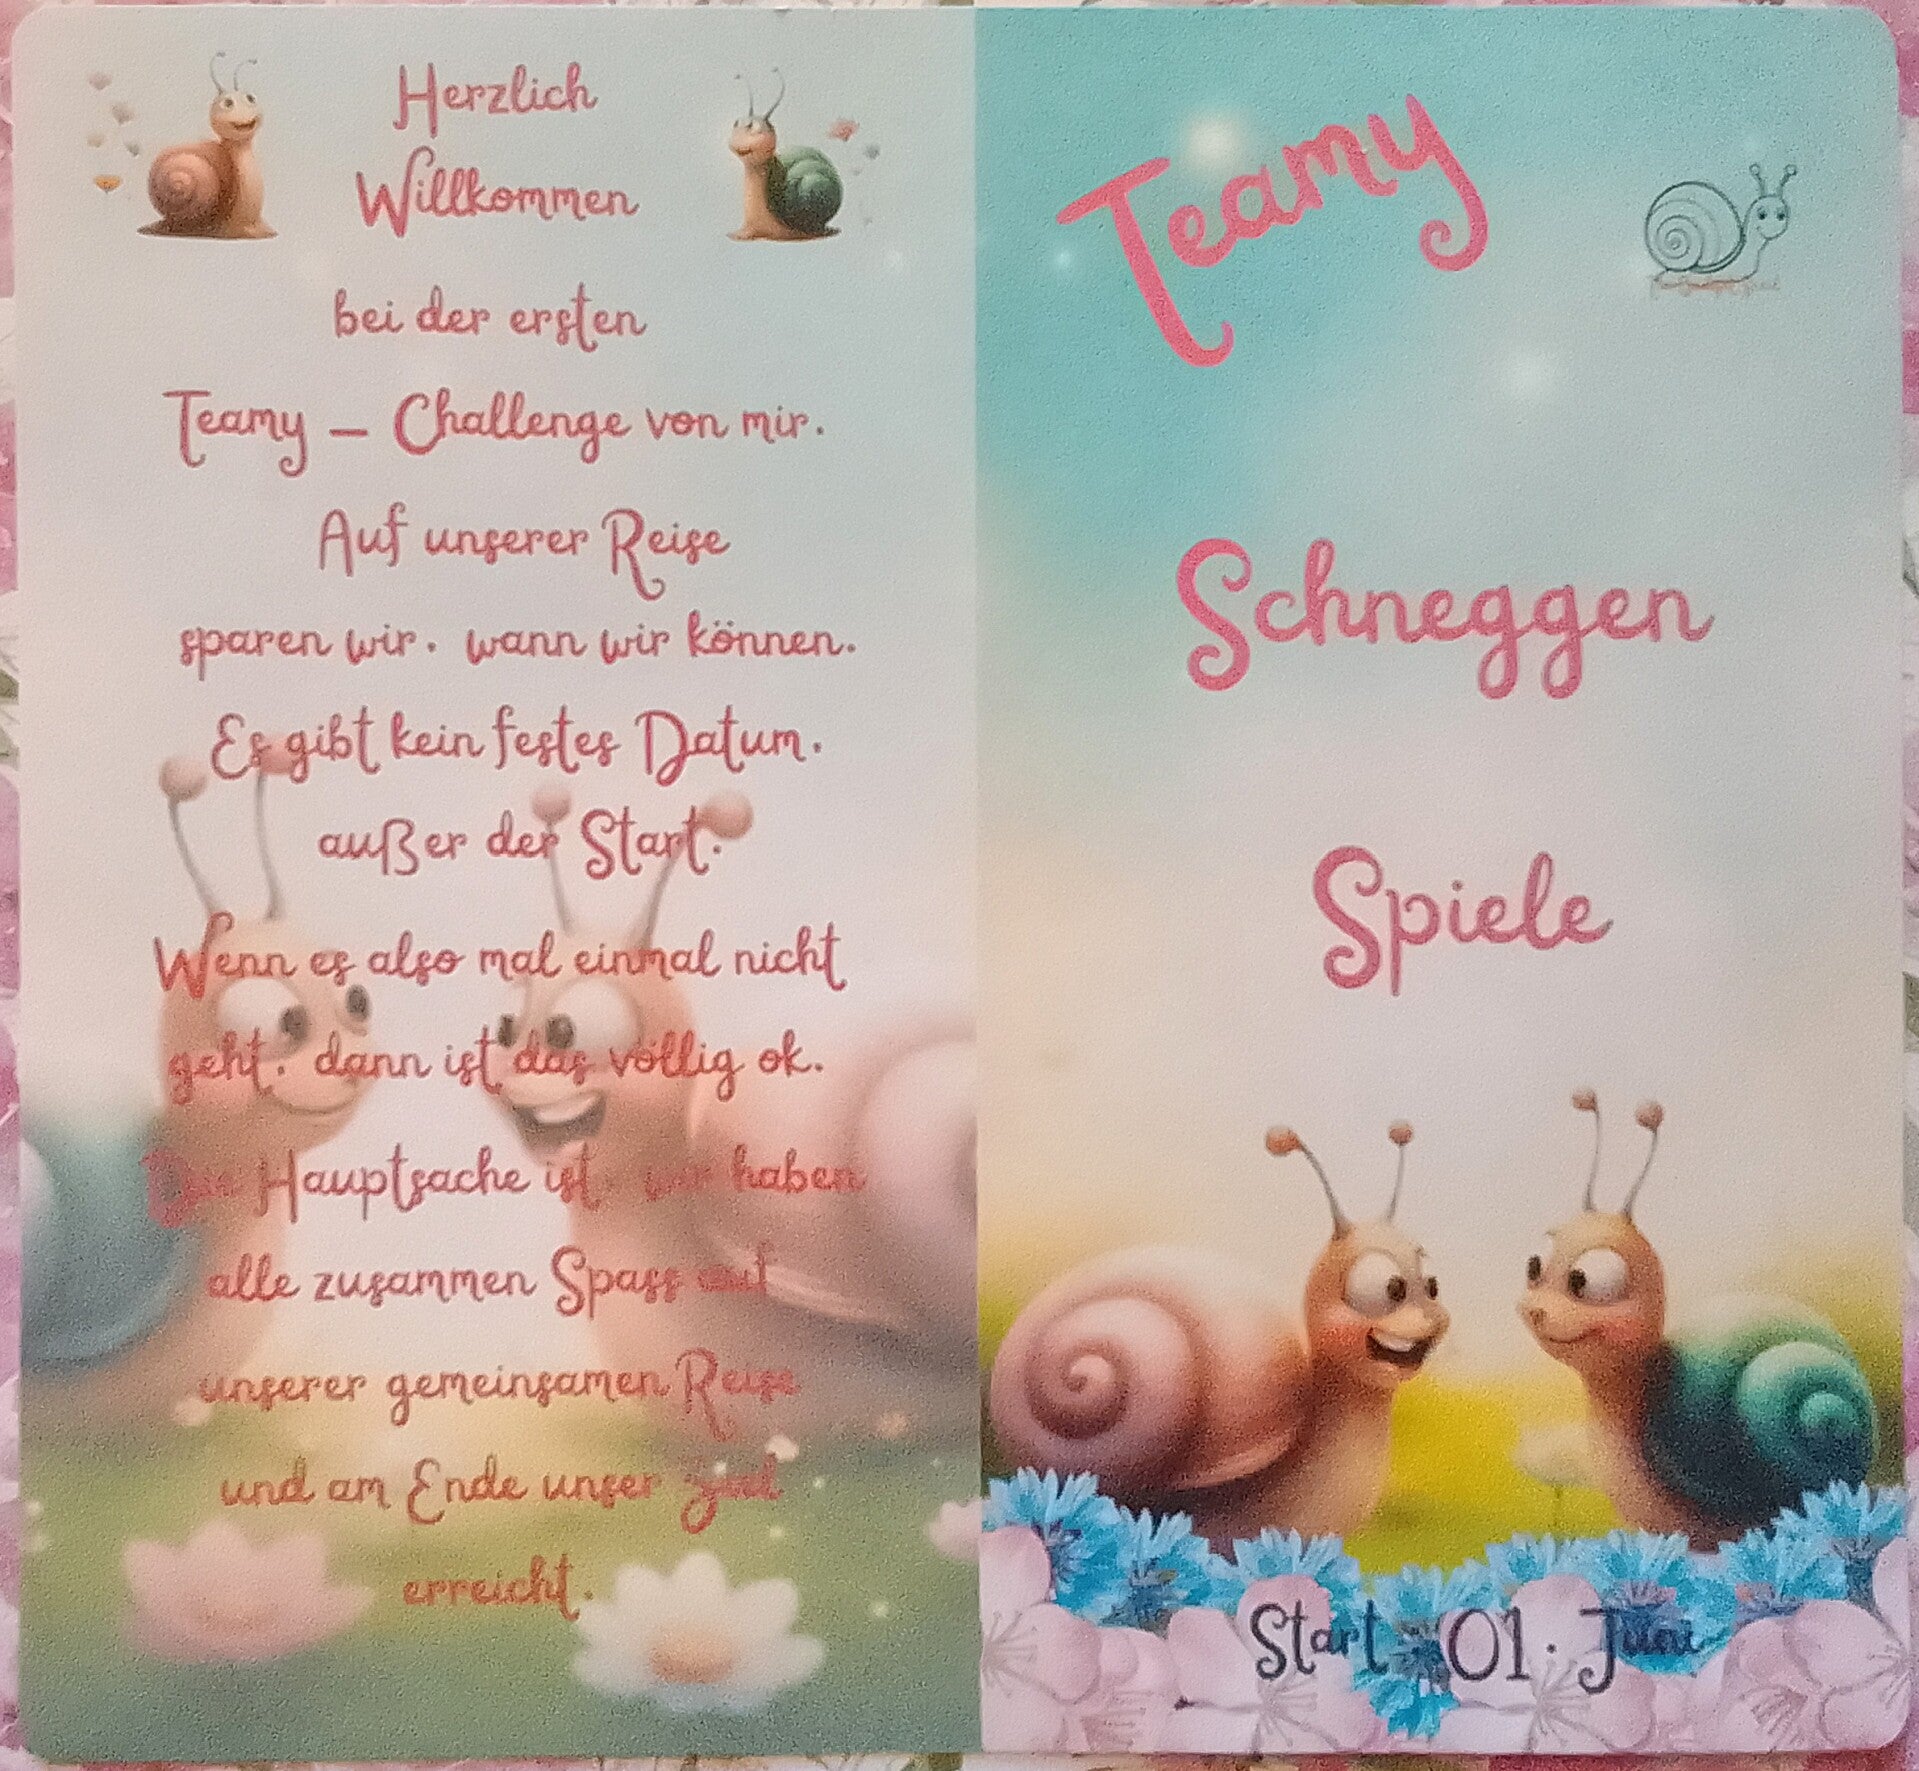 Herzlich
Willkommen
bei der ersten
Teamy – Challenge von mir.
Auf unserer Reise
sparen wir. wann wir können.
Es gibt kein festes Datum.
außer der Start.
Wenn es also mal einmal nicht
geht. dann ist das völlig ok.
Die Hauptsache ist wir haben
alle zusammen Spass auf
unserer gemeinsamen Reise
und am Ende unser ziel
erreicht.
Teamy
Schneggen
Spiele
Start : 01. Juni